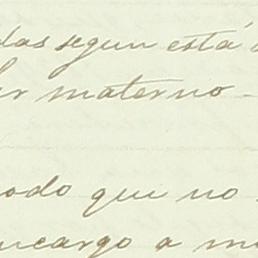 das segun está
materno
odo que no
ncargo a